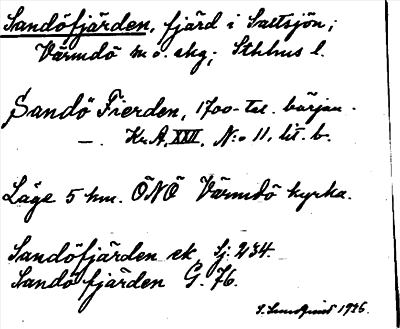 Sandöfjärden, fjärd i Saltsjön;
Värmdö sn o. skg; Sthlms l.
Sandö Fierden, 1700-tal. början.
—. Kr.A. XXII, N:o 11, lit. b.
Läge 5 km. ÖNÖ Värmdö kyrka.
Sandöfjärden ek. Sj. 234.
Sandöfjärden G. 76.
S. Lundqvist 1926.